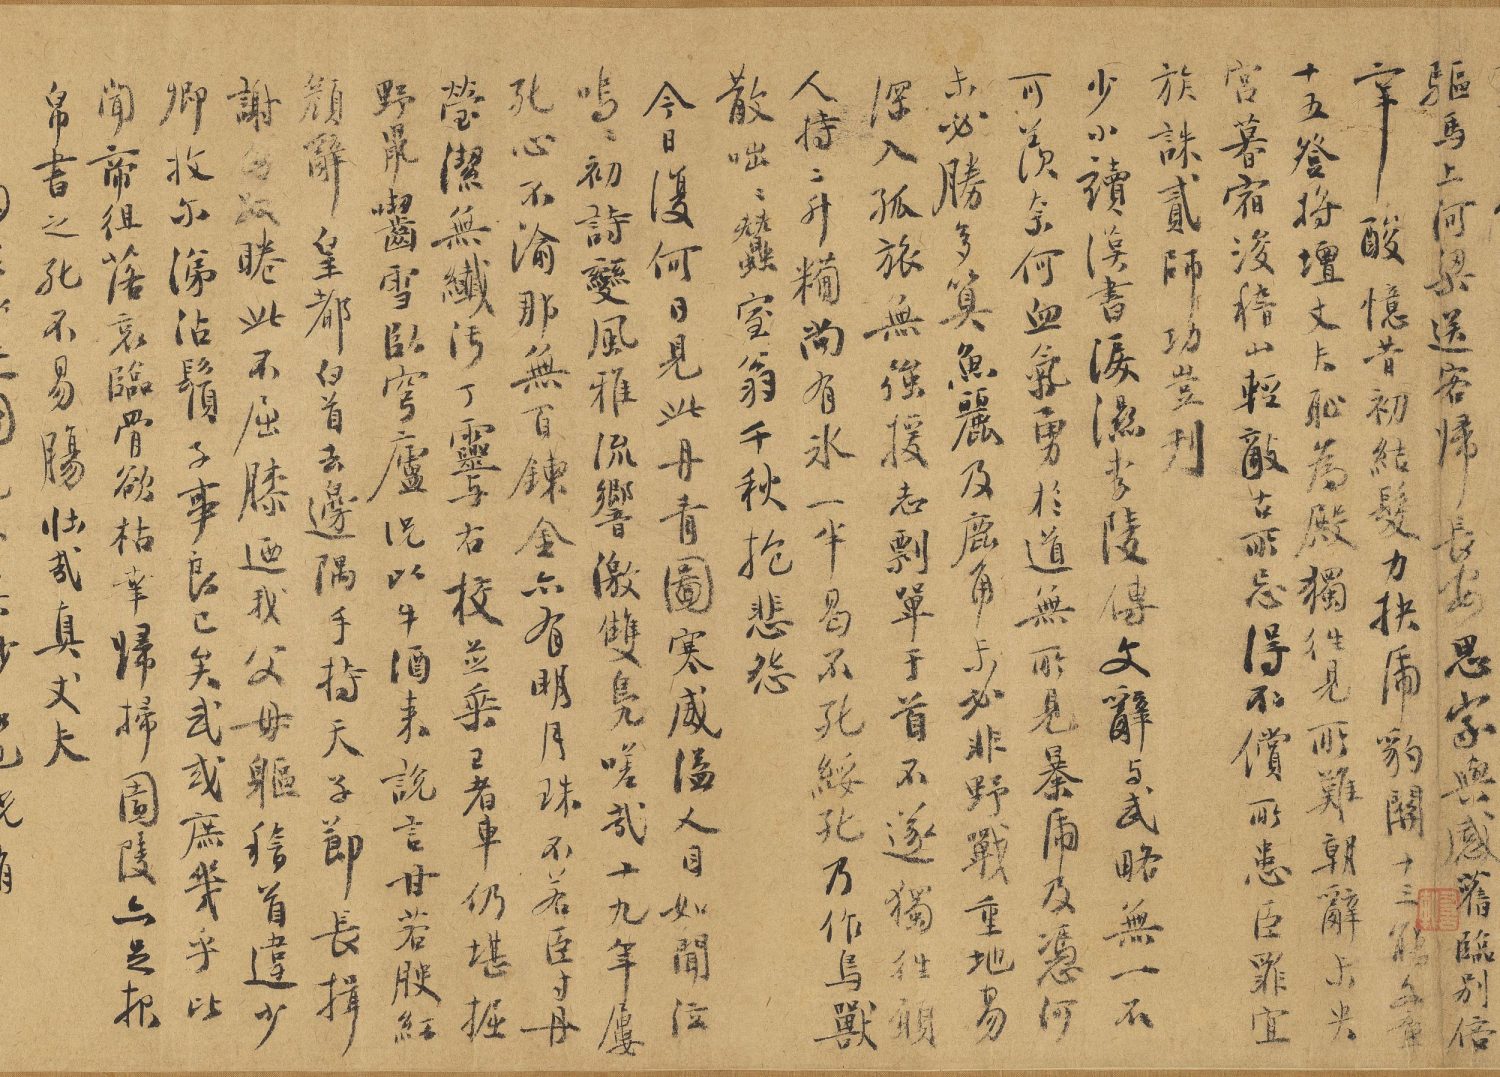 驅馬上河梁送客歸長安思家與感舊臨別倍
辛酸憶昔初結髮力抉虎豹關十三
十五登將壇丈夫恥為殿獨往見所難朝辭未央
宮暮宿浚稽山輕敵古所忌得不償所患臣罪宜
族誅貳師功豈刊
少小讀漢書淚濕李陵傳文辭与武略無一不
可羨奈何血氣勇於道無所見暴虎及馮河
未必勝多算魚麗及鹿角未必非野戰重地易
深入孤旅無強援志剽單于首不遂獨往願
人持二升糒尚有冰一半曷不死綏死乃作鳥獸
散咄咄蠶室翁千秋抱悲怨
今日復何日見此丹青圖寒威溢人目如聞泣
嗚嗚初詩變風雅流響激雙鳧嗟哉十九年屢
死心不渝那無百鍊金亦有明月珠不若臣寸丹
瑩潔無纖污丁靈与右校並乘王者車仍堪掘
野鼠齧雪臥穹廬況以牛酒來說言甘若腴紅
顏辭皇都白首去邊隅手持天子節長揖
謝匈奴睠此不屈膝迺我父母軀稽首違少
卿收尔涕沾鬚子事良已矣武或庶幾乎比
聞帝徂落哀臨骨欲枯幸歸掃園陵亦足報
帛書之死不易腸壯哉真丈夫